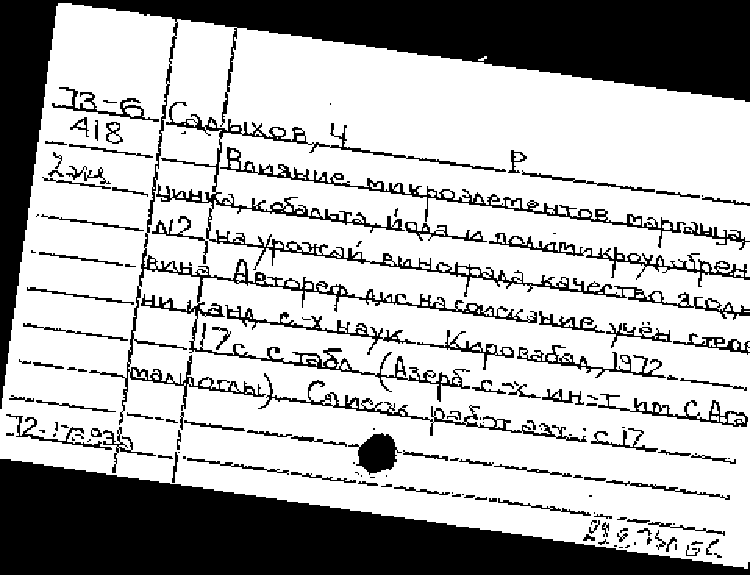 73-6
418
2 экз
Садыхов, Ч Р
Влияние микроэлементов марганца,
цинка, кобальта, йода и полимикроудобрен
№2 на урожай винограда, качество ягоды
вина. Автореф дис на соискание учён степе
ни канд с.-х наук. Кировабад, 1972
17 с. с табл (Азерб с.-х. ин-т им С. Ага
малиоглы). Список работ авт.: с 17
72-173939